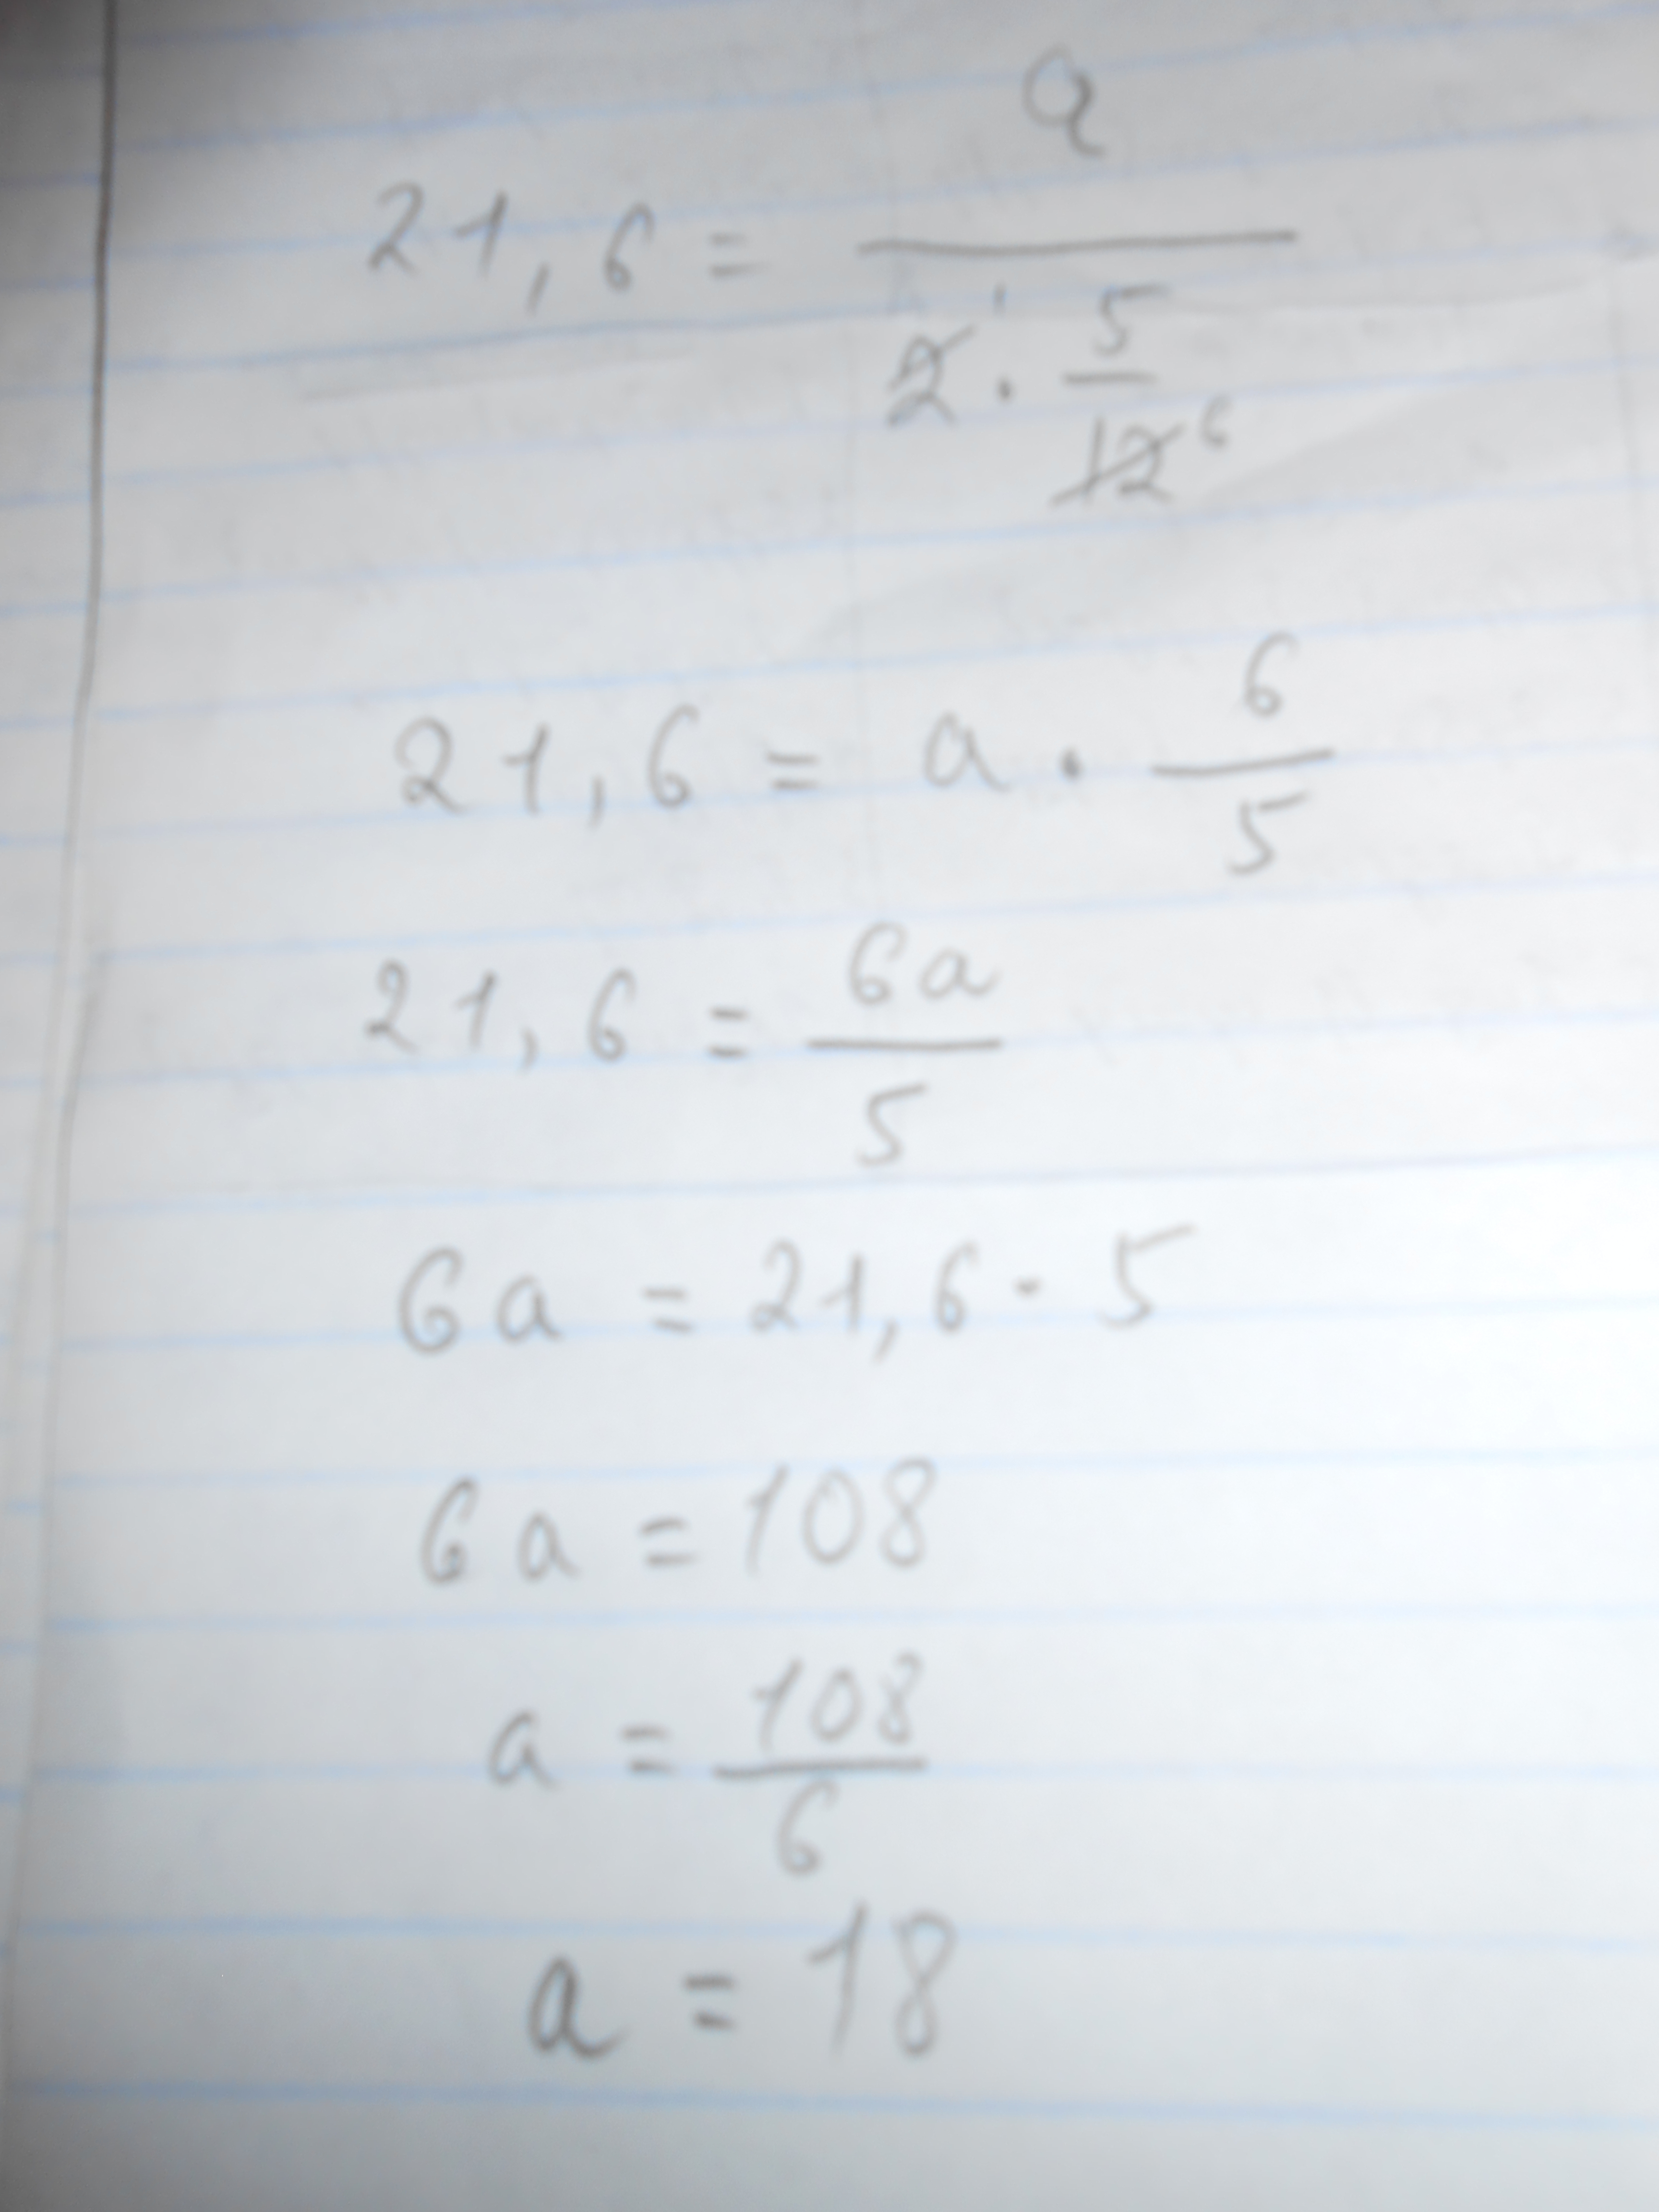 21,6 = a / (2 1 · 5/12 6)
21,6 = a · 6/5
21,6 = 6a/5
6a = 21,6 · 5
6a = 108
a = 108/6
a = 18